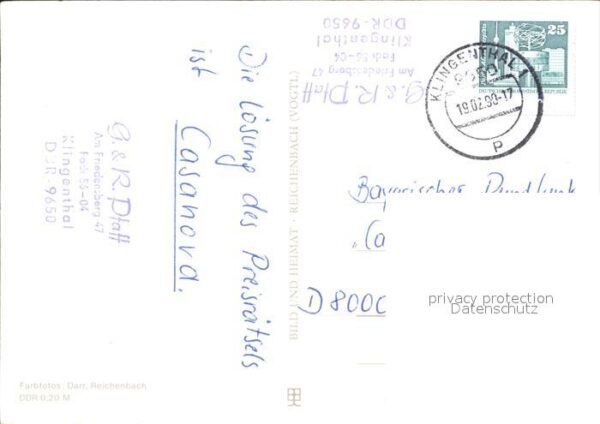 G. & R. Pfaff
Am Friedensberg 47
Fach 56-04
Klingenthal
DDR-9650
Die Lösung des Preisrätsels
ist
Casanova.
G. & R. Pfaff
Am Friedensberg 47
Fach 56-04
Klingenthal
DDR-9650
BILD UND HEIMAT · REICHENBACH (VOGTL)
25
KLINGENTHAL 1
9650
19.02.90-17
P
Bayerischer Rundfunk
D 8000
privacy protection
Datenschutz
Farbfotos: Darr, Reichenbach
DDR 0,20 M